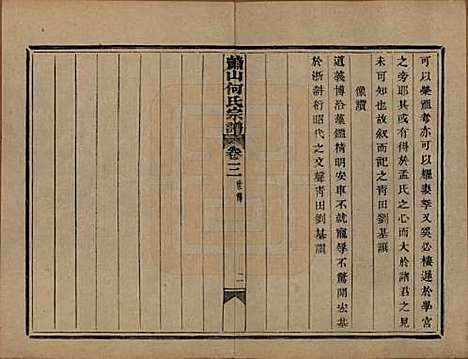 可以榮祖考亦可以耀妻孥又奚必棲遲於學宮
之旁耶其亦有於孟氏之心而大於諸君之見
未可知也故叙而記之青田劉基譔
像讚
道義博洽藻鑑精明安車不就寵辱不驚開宏基
於浙討衍昭代之文聲青田劉基譔
蕭山何氏宗譜
卷三
世傳
二